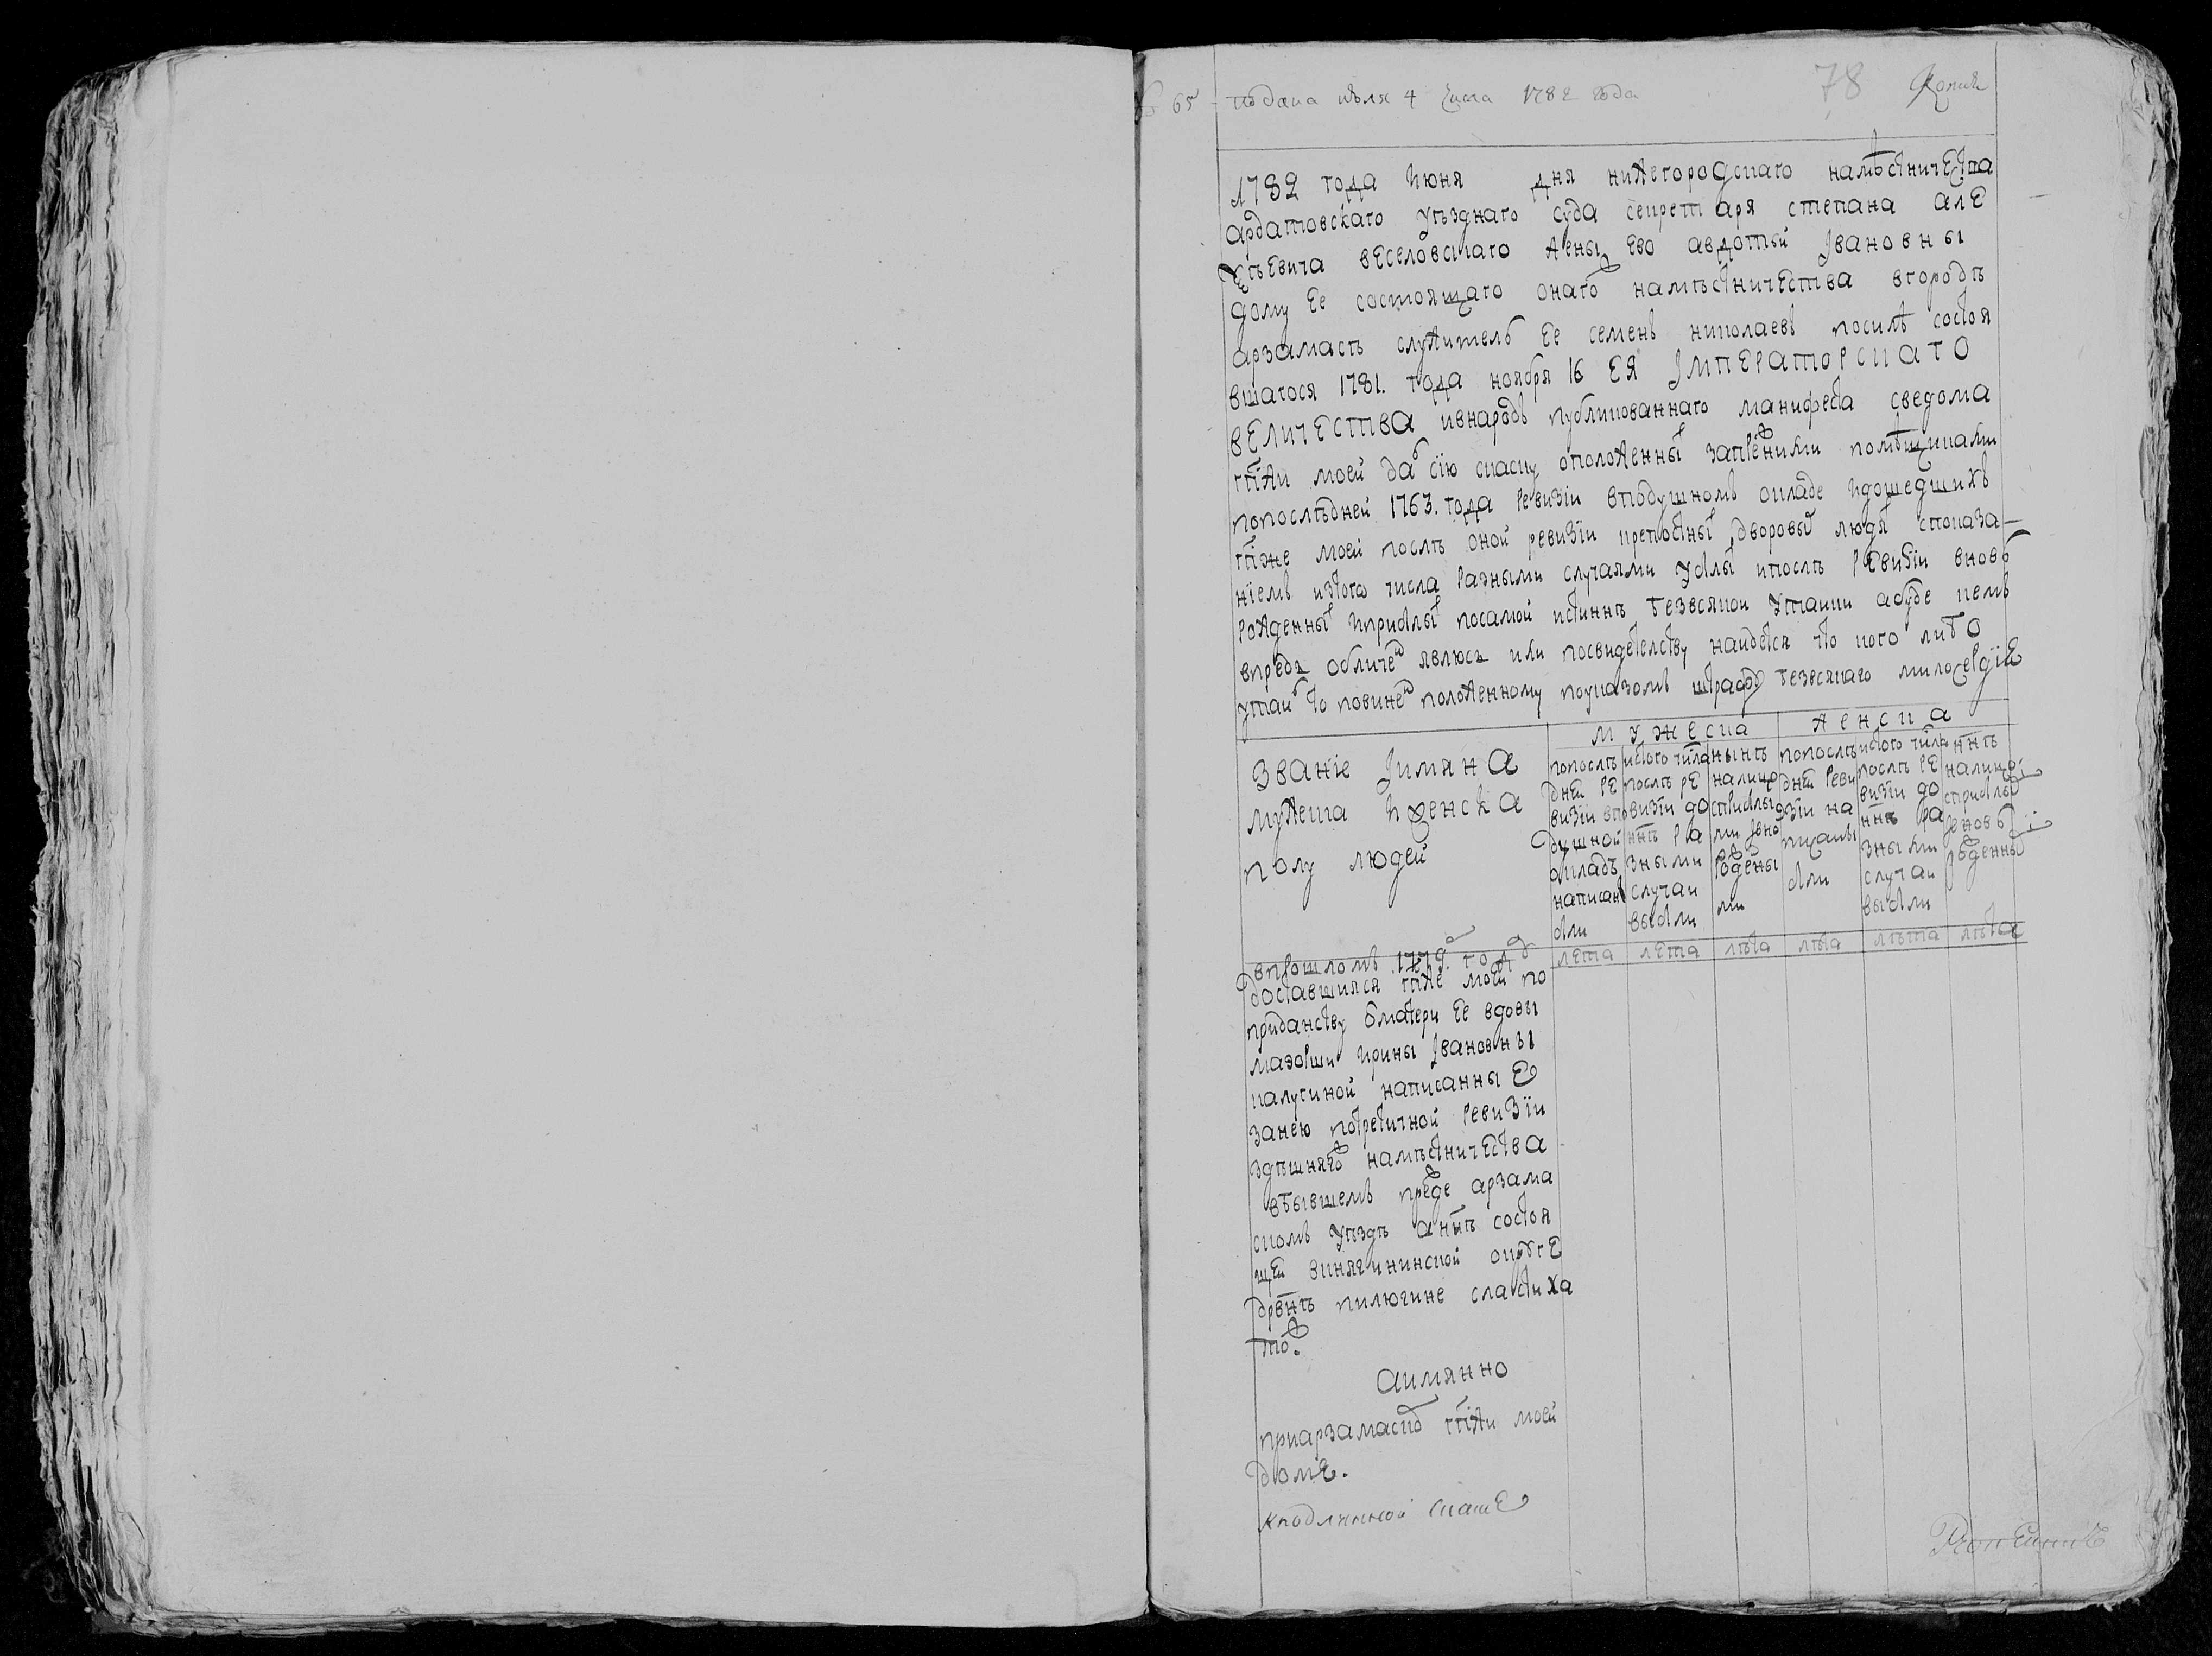 № 65 подана июля 4 числа 1782 года 78 Копия
1782 года июня дня нижегородскаго намѣстничества
ардатовскаго уѣзднаго суда секретаря степана але
ѯѣевича веселовскаго жены ево авдотьи iвановны
дому ее состоящаго онаго намѣстничества вгородѣ
арзамасѣ служитель ее семенъ николаевъ посилѣ состоя
вшагося 1781. года ноября 16 ЕЯ IМПЕРАТОРСКАГО
ВЕЛИЧЕСТВА ивнародъ публикованнаго манифеста сведома
гпжи моей дал сiю скаску оположенных запрежними помѣщиками
попослѣдней 1763. года ревизiи вподушномъ окладе идошедшихъ
гпже моей послѣ оной ревизiи крепостных дворовых людях споказа
нiемъ изтого числа разными случаями убылых ипослѣ ревизiи вновь
рожденных иприбылых посамой истиннѣ безвсякой утайки абуде кемъ
впредь обличен явлюсь или посвидетелству найдется что кого либо
утаил то повинен положенному поуказомъ штрафу безвсякаго милосердiя
мужеска женска
Званiе iимяна
мужеска иженска
полу людей
попослѣ
дней ре
визiи впо
душной
окладъ
написаны
были
истого числа
послѣ ре
визiи до
ннѣ ра
зными
случаи
выбыли
нынѣ
налицо
сприбылы
ми iвно
рожденны
ми
попослѣ
дней реви
зiи на
писаны
были
истого числа
послѣ ре
визiи до
ннѣ ра
зными
случаи
выбыли
ннѣ
налицо
сприбылыми
iвновь
рожденными
лета лета лѣта лѣта лѣта лѣта
впрошломъ 1779. году
доставшихся гпже моей по
приданству от матери ее вдовы
маiорши ирины iвановны
калугиной написанные
занею потретичной ревизiи
здѣшняго намѣстничества
вбывшемъ прежде арзама
скомъ уѣздѣ аннѣ состоя
щей вкнягининской округе
деревнѣ пилюгине сластиха
тож.
аимянно
приарзамаском гпжи моей
доме.
кподлинной скаске